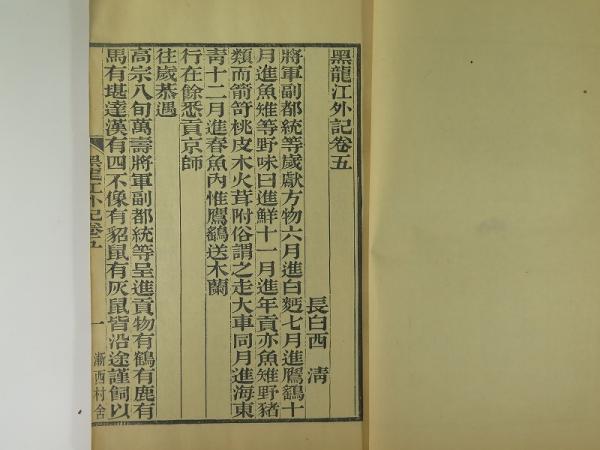 黑龍江外記卷五
長白西　淸
將軍副都統等歲獻方物六月進白麫七月進鷹鷂十
月進魚雉等野味曰進鮮十一月進年貢亦魚雉野豬
類而箭笴桃皮木火茸附俗謂之走大車同月進海東
靑十二月進春魚內惟鷹鷂送木蘭
行在餘悉貢京師
往歲恭遇
高宗八旬萬壽將軍副都統等呈進貢物有鶴有鹿有
馬有堪達漢有四不像有貂鼠有灰鼠皆沿途謹飼以
黑龍江外記卷五　一　漸西村舍